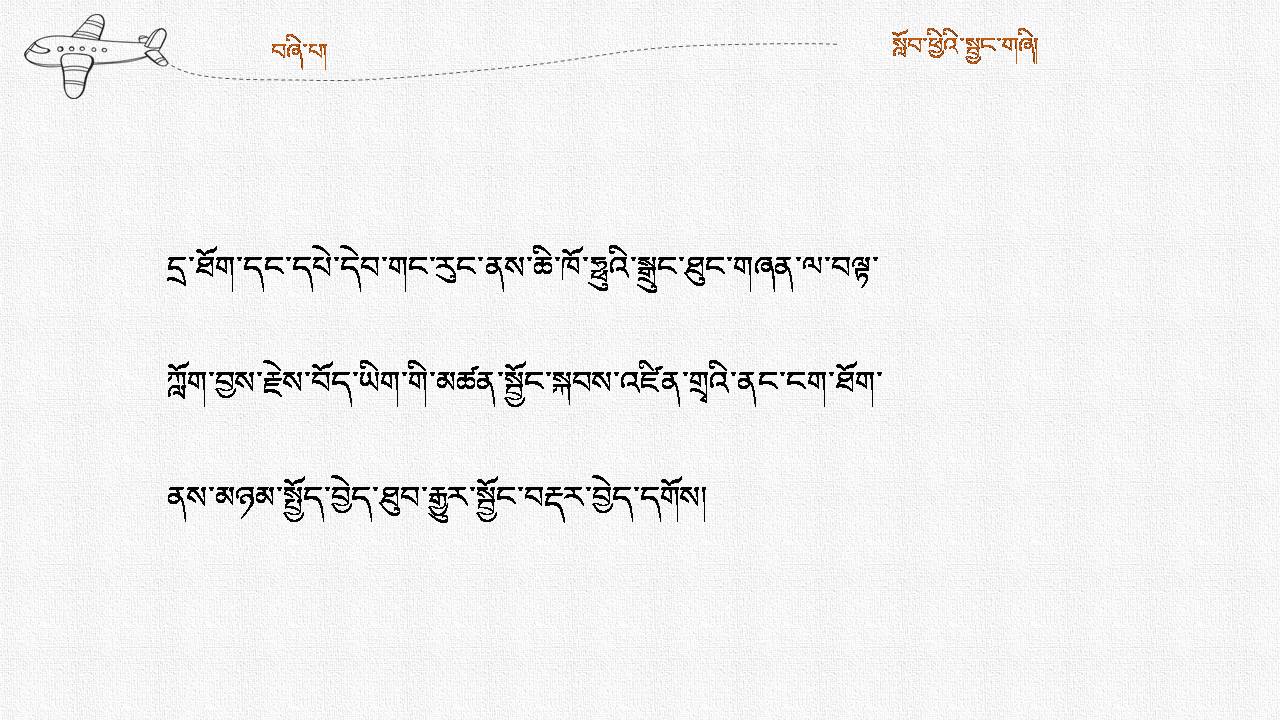 བཞི་པ།
སློབ་ཕྱིའི་སྦྱང་གཞི།
དྲ་ཐོག་དང་དཔེ་དེབ་གང་རུང་ནས་ཆི་ཁོ་ཧྥུའི་སྒྲུང་ཐུང་གཞན་ལ་བལྟ་
ཀློག་བྱས་རྗེས་བོད་ཡིག་གི་མཚན་སྦྱོང་སྐབས་འཛིན་གྲྭའི་ནང་ངག་ཐོག་
ནས་མཉམ་སྤྱོད་བྱེད་ཐུབ་རྒྱུར་སྦྱོང་བརྡར་བྱེད་དགོས།